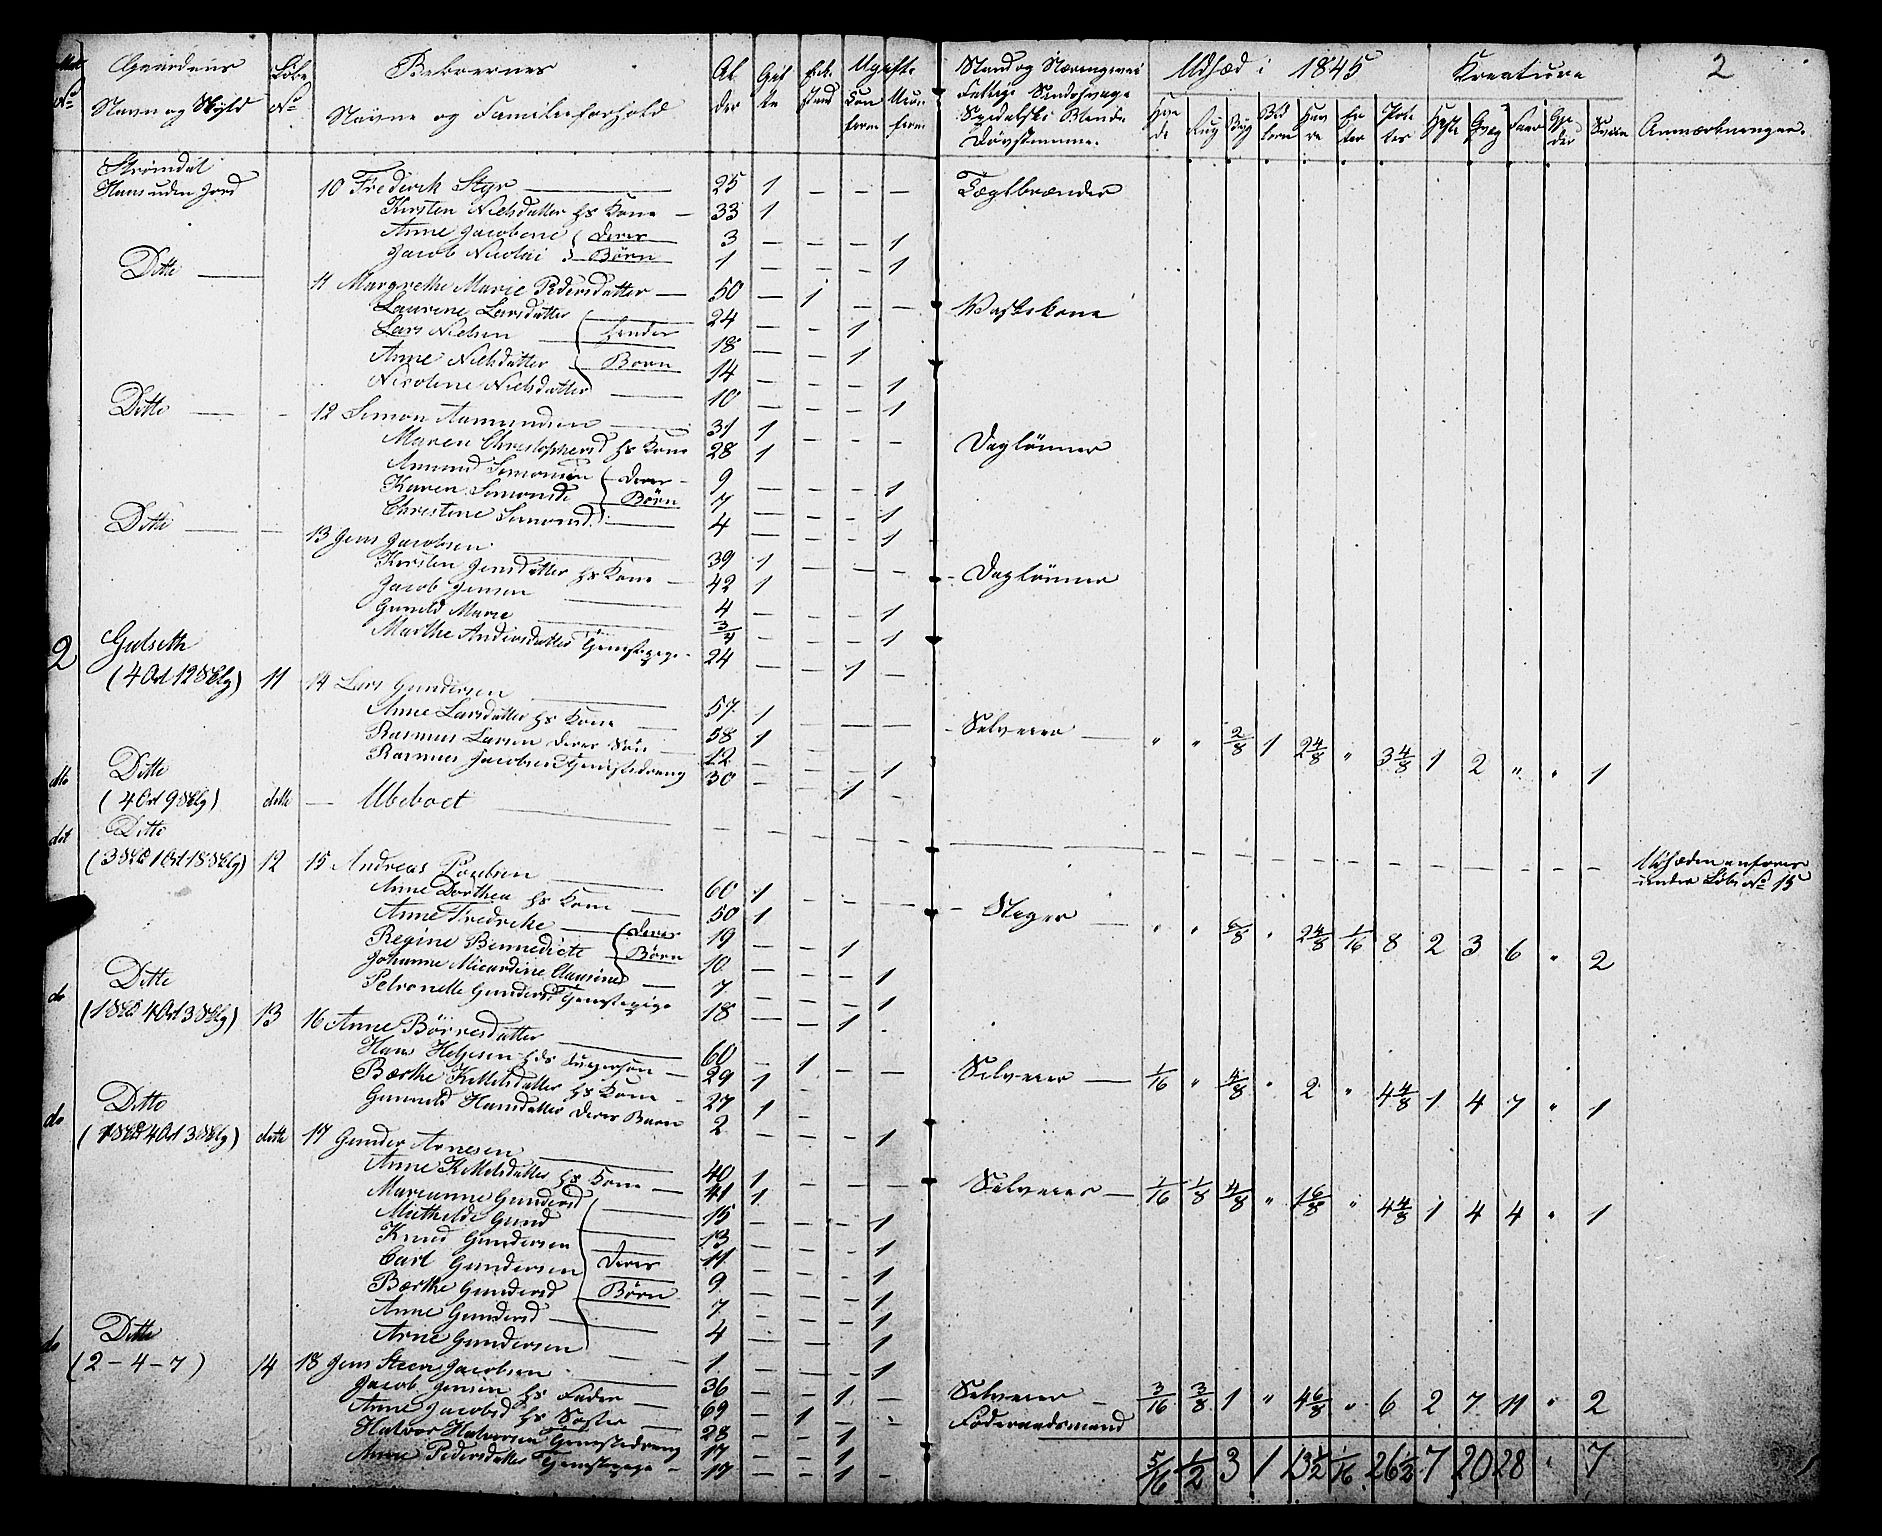 Gaardens Navn og Skyld Løbe No Beboernes Navne og Familieforhold Alder Gifte Enkestand Ugifte Confirm Uconfirm Stand og Næringsvei Udsæd i 1845 Kreature 2
Hvede Rug Byg Havre Erter Poteter Heste Qvæg Faar Sviin Anmærkninger.
Strømdal
Huus uden Jord 10 Frederik Styr 25 1 – – – Tæglbrænder
Kirsten Nielsdatter hs Kone – 33 1
Anne Jacobine Deres 3 – – – 1
Jacob Nicolai Børn 1 – – – 1
Ditte 11 Margrethe Marie Pedersdatter – 50 – 1 – – Vaskekone
Laurine Larsdatter 24 – – 1
Lars Nielsen hendes 18 – – 1
Anne Nielsdatter Børn 14 – – – 1
Nicoline Nielsdatter 10 – – – 1
Ditte 12 Simon Aamundsen 31 1 – – – Daglønner
Maren Christophersd hs Kone 28 1
Amund Simonsen Deres 9 – – – 1
Karen Simonsd Børn 7 – – – 1
Christine Simonsd 4 – – – 1
Ditte 13 Jens Jacobsen 39 1 – – – Daglønner
Kirsten Jensdatter hs Kone 42 1
Jacob Jensen 4 – – – 1
Gunild Marie 3/4 – – – 1
Marthe Andersdatter Tjenestepige 24 – – 1
2 Gulseth
(4 Ort 12 Sklg) 11 14 Lars Gundersen 57 1 – – – Selveier – " " 2/8 1 2 4/8 " 3 4/8 1 2 " " 1
Anne Larsdatter hs Kone 58 1
Rasmus Larsen deres Søn 12 – – – 1
Rasmus Jacobsen Tjenestedreng 30 – – 1
do Ditte
(4 Ort 9 Sklg) ditto – Ubeboet – Udsæden anføres under Løbe No 15
do Ditte
(3 Dlr 1 Ort 18 Sklg) 12 15 Andreas Poulsen 60 1 – – – " " 6/8 " 2 4/8 1/16 8 2 3 6 " 2
Anne Dorthea hs Kone 50 1
Anne Fredrike Deres 19 – – 1
Regine Bennedicte Børn 10 – – – 1
Johanne Micardine Clausine 7 – – – 1
Petronelle Gundersd Tjenestepige 18 – – 1
do Ditte
(1 Dlr 4 Ort 3 Sklg) 13 16 Anne Börresdatter 60 – 1 – – Selveier – 1/16 " 4/8 " 2 " 4 4/8 1 4 7 " 1
Hans Helgesen hds 29 1
Bærthe Kittelsdatter hs Kone 27 1
Gunnild Hansdatter deres Barn 2 – – – 1
do Ditte
(1 Dlr 4 Ort 3 Sklg) ditto 17 Gunder Arnesen 40 1 Selveier – 1/16 1/8 4/8 " 1 6/8 " 4 4/8 1 4 4 " 1
Anne Kittelsdatter hs Kone 41 1
Marianne Gundersd 15 – – – 1
Mathilde Gund 13 – – – 1
Knud Gundersen 11 – – – 1
Carl Gundersen Deres 9 – – – 1
Bærthe Gundersd Børn 7 – – – 1
Anne Gundersd 4 – – – 1
Arne Gundersen 1 – – – 1
do Ditte
(2 – 4 – 7) 14 18 Jens Steen Jacobsen 36 – – 1 – Selveier – 3/16 3/8 1 " 4 6/8 " 6 2 7 11 " 2
Jacob Jensen hs Fader 69 – 1 – Føderaadsmand
Anne Jacobsd hs Søster 28 – – 1
Halvor Halvorsen Tjenestedreng 17 – – 1
Anne Pedersdatter Tjenestepige – 17 – – 1 –
5/16 1/2 3 1 13 1/2 1/16 26 1/2 7 20 28 " 7